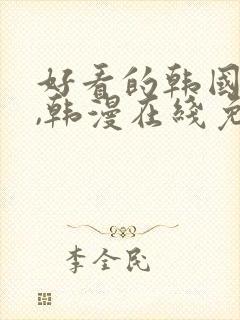 好看的韩国
,韩漫在线免
李全民